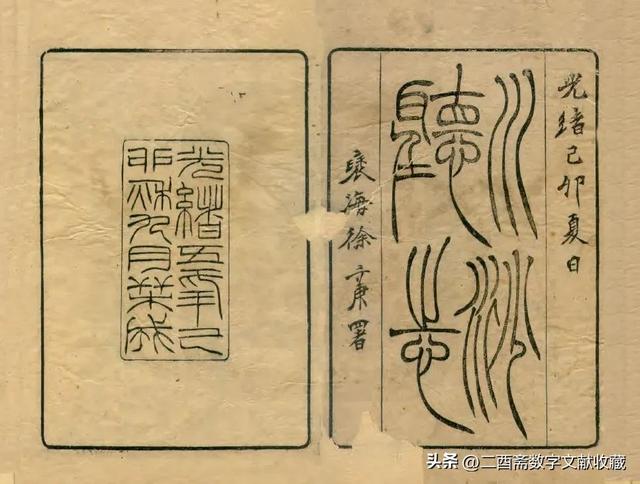 光緒己卯夏日
川沙
聽志
褎海徐三庚署
光緒五年己
卯秋九月栞成
头条 @二酉斋数字文献收藏